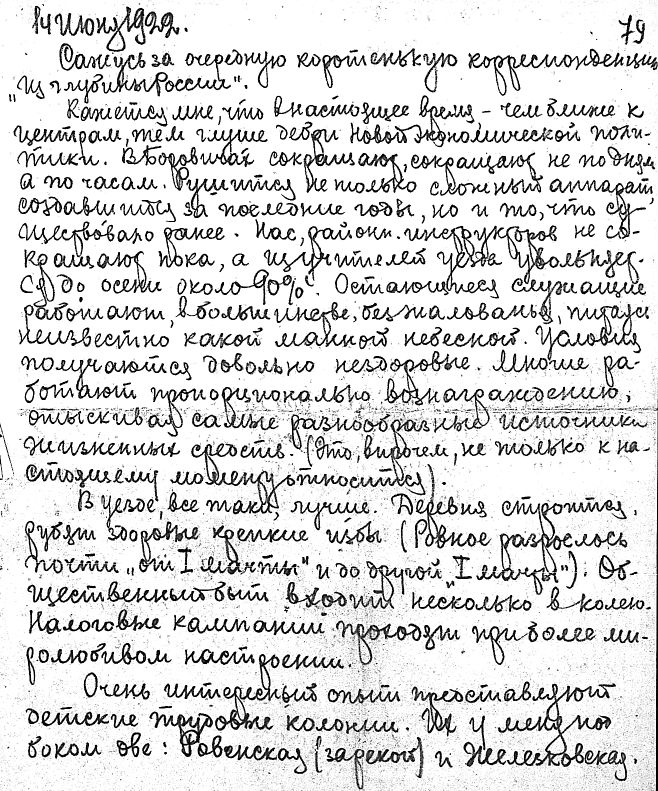 14 Июня 1922.
79
Сажусь за очередную коротенькую корреспонденцию
"Из глубины России".
Кажется мне, что в настоящее время – чем ближе к
центрам, тем глуше дебри Новой Экономической поли-
тики. В Боровичах сокращают, сокращают не по дням
а по часам. Рушится не только сложный аппарат,
создавшийся за последние годы, но и то, что су-
ществовало ранее. Нас, районн. инструкторов не со-
кращают пока, а из учителей уезда увольняет-
ся до осени около 90%. Остающиеся служащие
работают, в большинстве, без жалованья, питаясь
неизвестно какой манной небесной. Условия
получаются довольно нездоровые. Многие ра-
ботают пропорционально вознаграждению,
отыскивая самые разнообразные источники
жизненных средств. (Это, впрочем, не только к на-
стоящему моменту относится).
В уезде, все таки, лучше. Деревня строится,
рубят здоровые крепкие избы (Ровное разрослось
почти "от I мачты" и до другой "I мачты"). Об-
щественный быт входит несколько в колею.
Налоговые кампании проходят при более ми-
ролюбивом настроении.
Очень интересный опыт представляют
детские трудовые колонии. Их у меня под
боком две: Ровенская (за рекой) и Железковская.